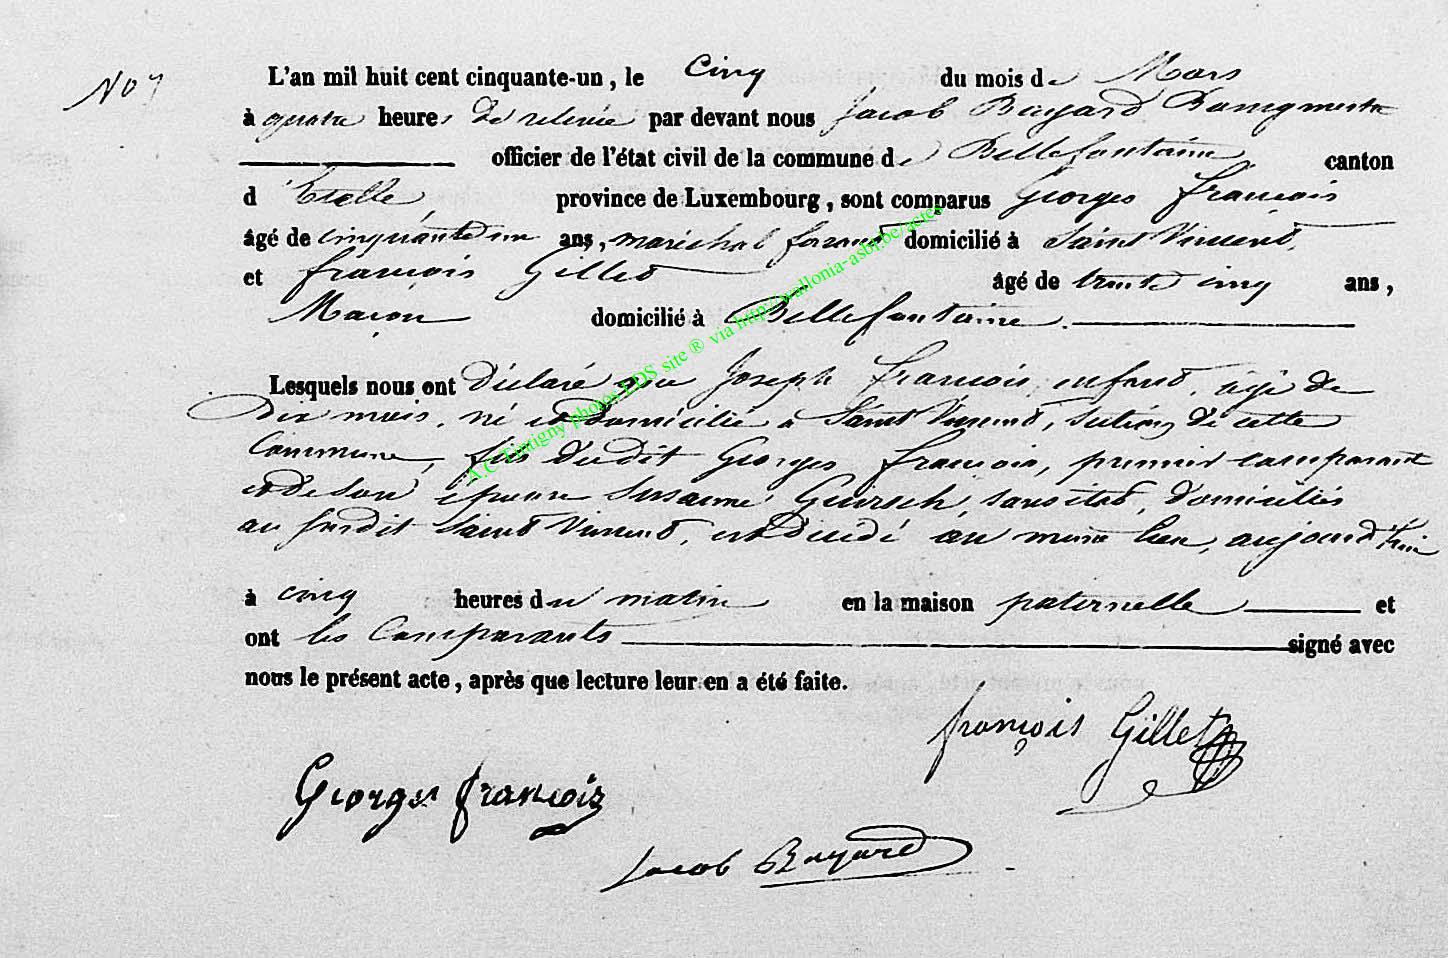 No 7
L'an mil huit cent cinquante-un, le Cinq du mois de Mars
à quatre heures de relevée par devant nous Jacob Buyard Bourgmestre
officier de l'état civil de la commune de Bellefontaine canton
d'Etalle province de Luxembourg, sont comparus Georges François
âgé de cinquante un ans, maréchal ferrant domicilié à Saint Vincent,
et François Gillet âgé de trente cinq ans,
Maçon domicilié à Bellefontaine.
Lesquels nous ont Déclaré que Joseph François, enfant, âgé de
Dix mois, né et domicilié à Saint Vincent, section de cette
Commune, fils dudit Georges François, premier comparant
et de son épouse Susanne, sans état, domiciliés
au susdit Saint Vincent, est décédé au même lieu, aujourd'hui
à cinq heures du matin en la maison paternelle et
ont les Comparants signé avec
nous le présent acte, après que lecture leur en a été faite.
françois Gillet
Georges françois
Jacob Buyard
A.C Tintigny photos EDS site ® via http://wallonia-asbl.be/actes